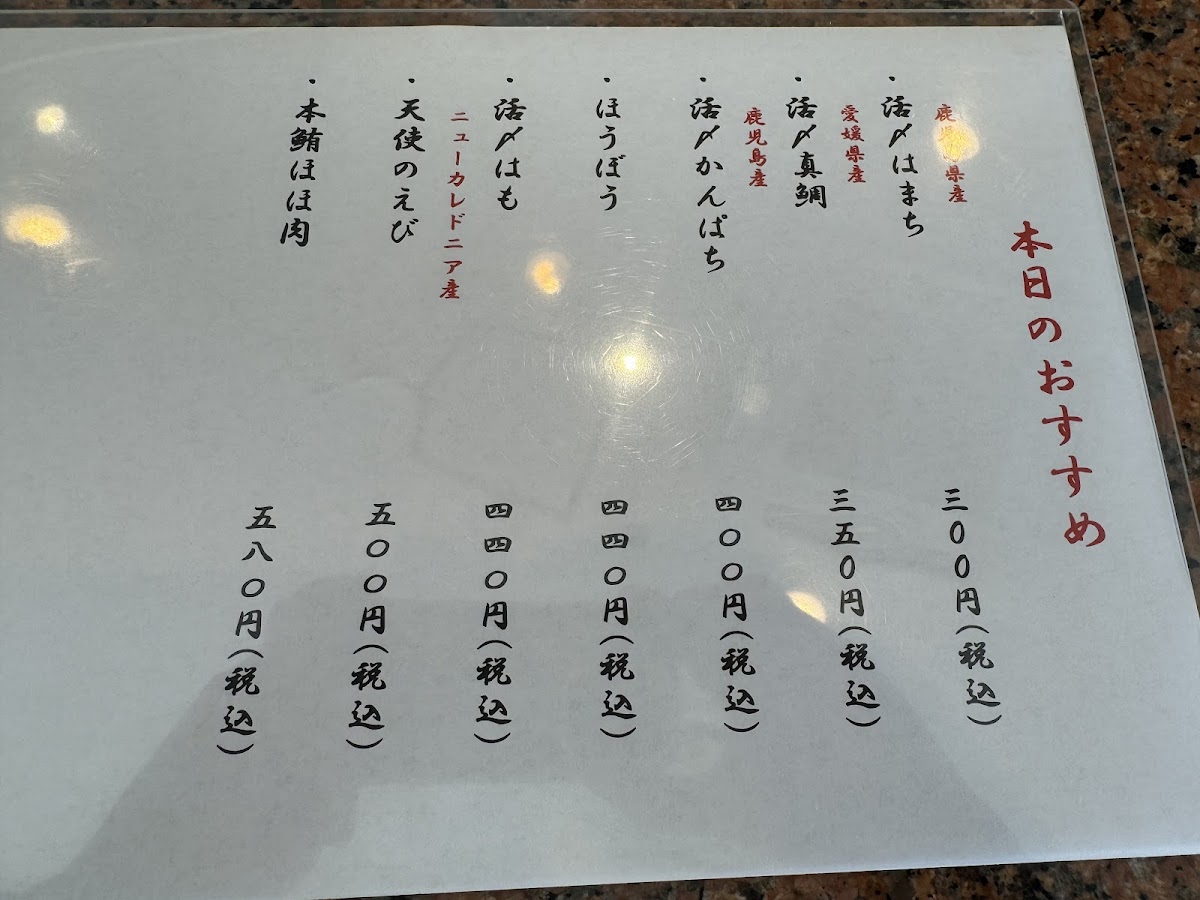 本日のおすすめ
鹿児島県産
・活〆はまち 三〇〇円(税込)
愛媛県産
・活〆真鯛 三五〇円(税込)
鹿児島産
・活〆かんぱち 四〇〇円(税込)
・ほうぼう 四四〇円(税込)
・活〆はも 四四〇円(税込)
ニューカレドニア産
・天使のえび 五〇〇円(税込)
・本鮪ほほ肉 五八〇円(税込)